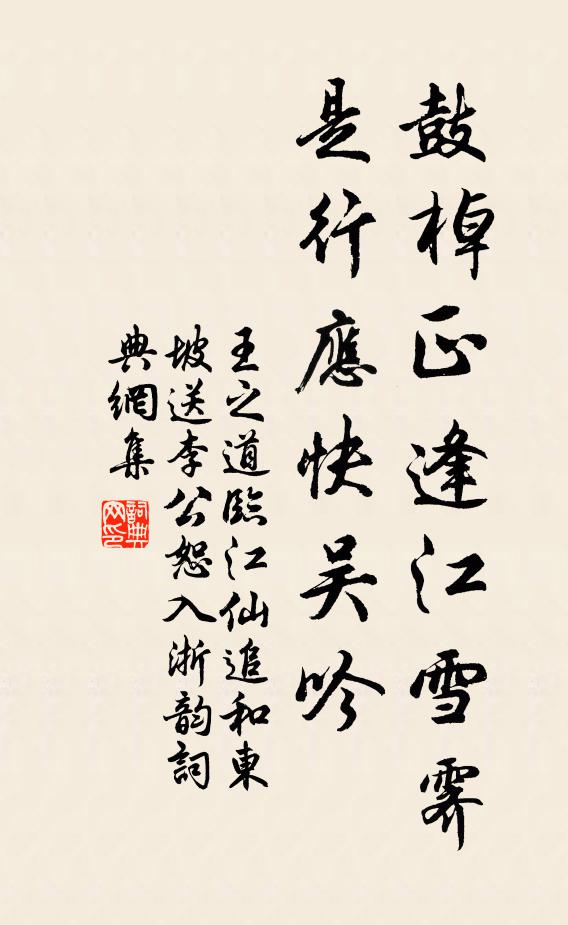 鼓棹正逢江雪霽
是行應快吴吟
王之道臨江仙追和東
坡送李公恕入浙韵詞
典網集
詞典
网印